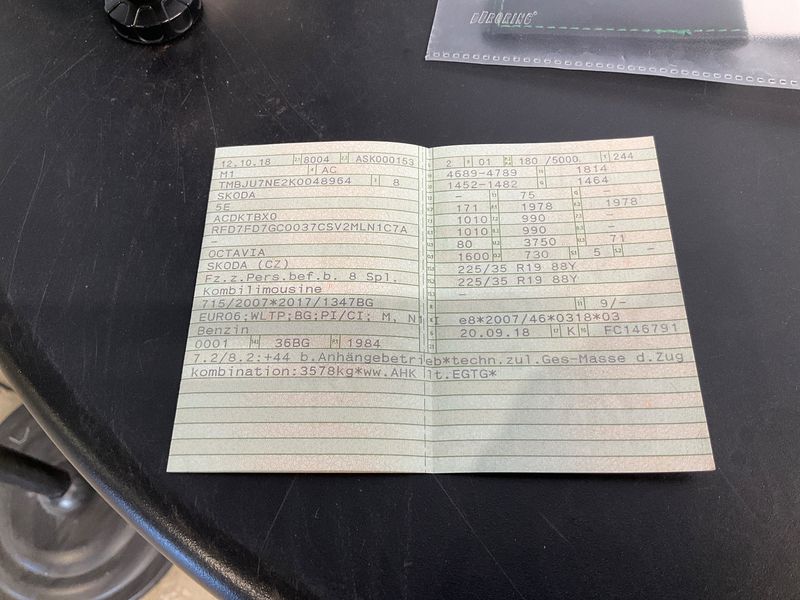 BÜROLINE
12.10.18 2.1 8004 2.2 ASK000153
M1 4 AC
TMBJU7NE2K0048964 3 8
SKODA
5E
ACDKTBX0
RFD7FD7GC0037CSV2MLN1C7A
-
OCTAVIA
SKODA (CZ)
Fz.z.Pers.bef.b. 8 Spl.
Kombilimousine
715/2007*2017/1347BG
EURO6;WLTP;BG;PI/CI; M, N1 I
Benzin
0001 36BG 1984
2 01 180 /5000 244
4689-4789 1814
1452-1482 1464
- 75 -
171 1978 1978
1010 990 -
1010 990 -
80 3750 71
1600 730 5 -
225/35 R19 88Y
225/35 R19 88Y
-
9/-
e8*2007/46*0318*03
20.09.18 K FC146791
7.2/8.2:+44 b.Anhängebetrieb*techn.zul.Ges-Masse d.Zug
kombination:3578kg*ww.AHK lt.EGTG*